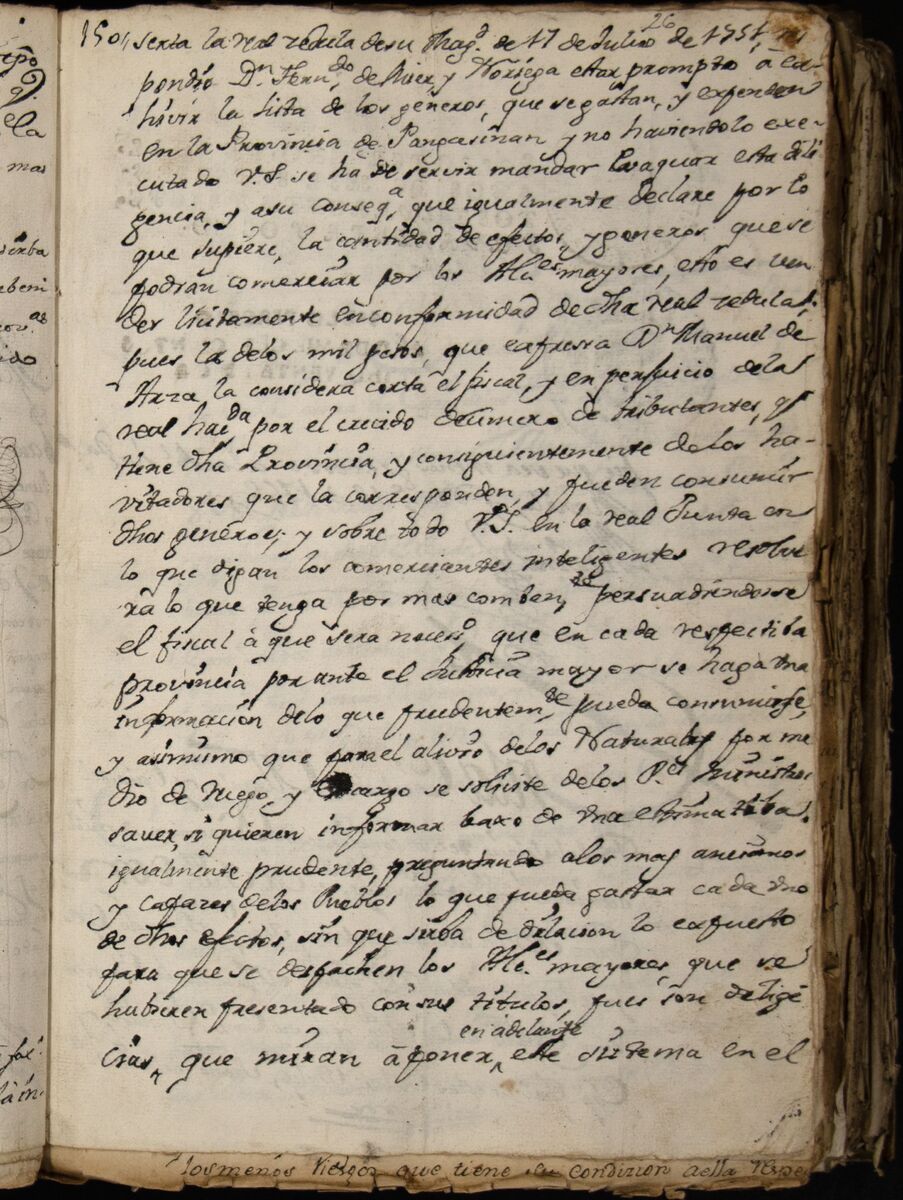 26
150,, seria la real zedula de su Mag.d de 17 de Julio de 1751, res
pondio D.n Fern.do de Arze y Noriega estar prompto a ex-
hivir la lista de los generos, que se gastan, y expenden
en la Provincia de Pangasinan y no haviendolo exe-
cutado V.S. se ha de servir mandar Evaquar esta dili
gencia, y a su conseq.a que igualmente declare por lo
que supiere, la cantidad de efectos, y generos que se
podràn comerciar por los Alc.es mayores, esto es ven
der licitamente en conformidad de dha real zedula,
pues la de los mil pesos, que expressa D.n Manuel de
Arza, la considera corta el fiscal, y en perjuicio de la
real haz.da por el crecido numero de tributantes, q.e
tiene dha Provincia, y consiguientemente de los ha-
vitadores que la corresponden, y pueden consumir
dhos generos, y sobre todo V.S. en la real Junta con
lo que digan los comerciantes inteligentes resolve
rà lo que tenga por mas comben.te persuadiendose
el fiscal à que sera neces.o que en cada respectiba
provincia por ante el Justicia mayor se haga una
informacion de lo que prudentem.te pueda consumirse,
y asimismo que para el alivio de los Naturales por me
dio de ruego, y encargo se solicite de los P.es Ministros
saver, si quieren informar baxo de una estimatiba
igualmente prudente, preguntando a los mas ancianos
y capazes de los Pueblos lo que pueda gastar cada uno
de dhos efectos, sin que sirba de dilacion lo expuesto
para que se despachen los Alc.es mayores, que se
hubieren presentado con sus titulos, pues son dilige
en adelante
cias, que miran à poner, este sistema en el
los menos riesgos que tiene su condizion aella